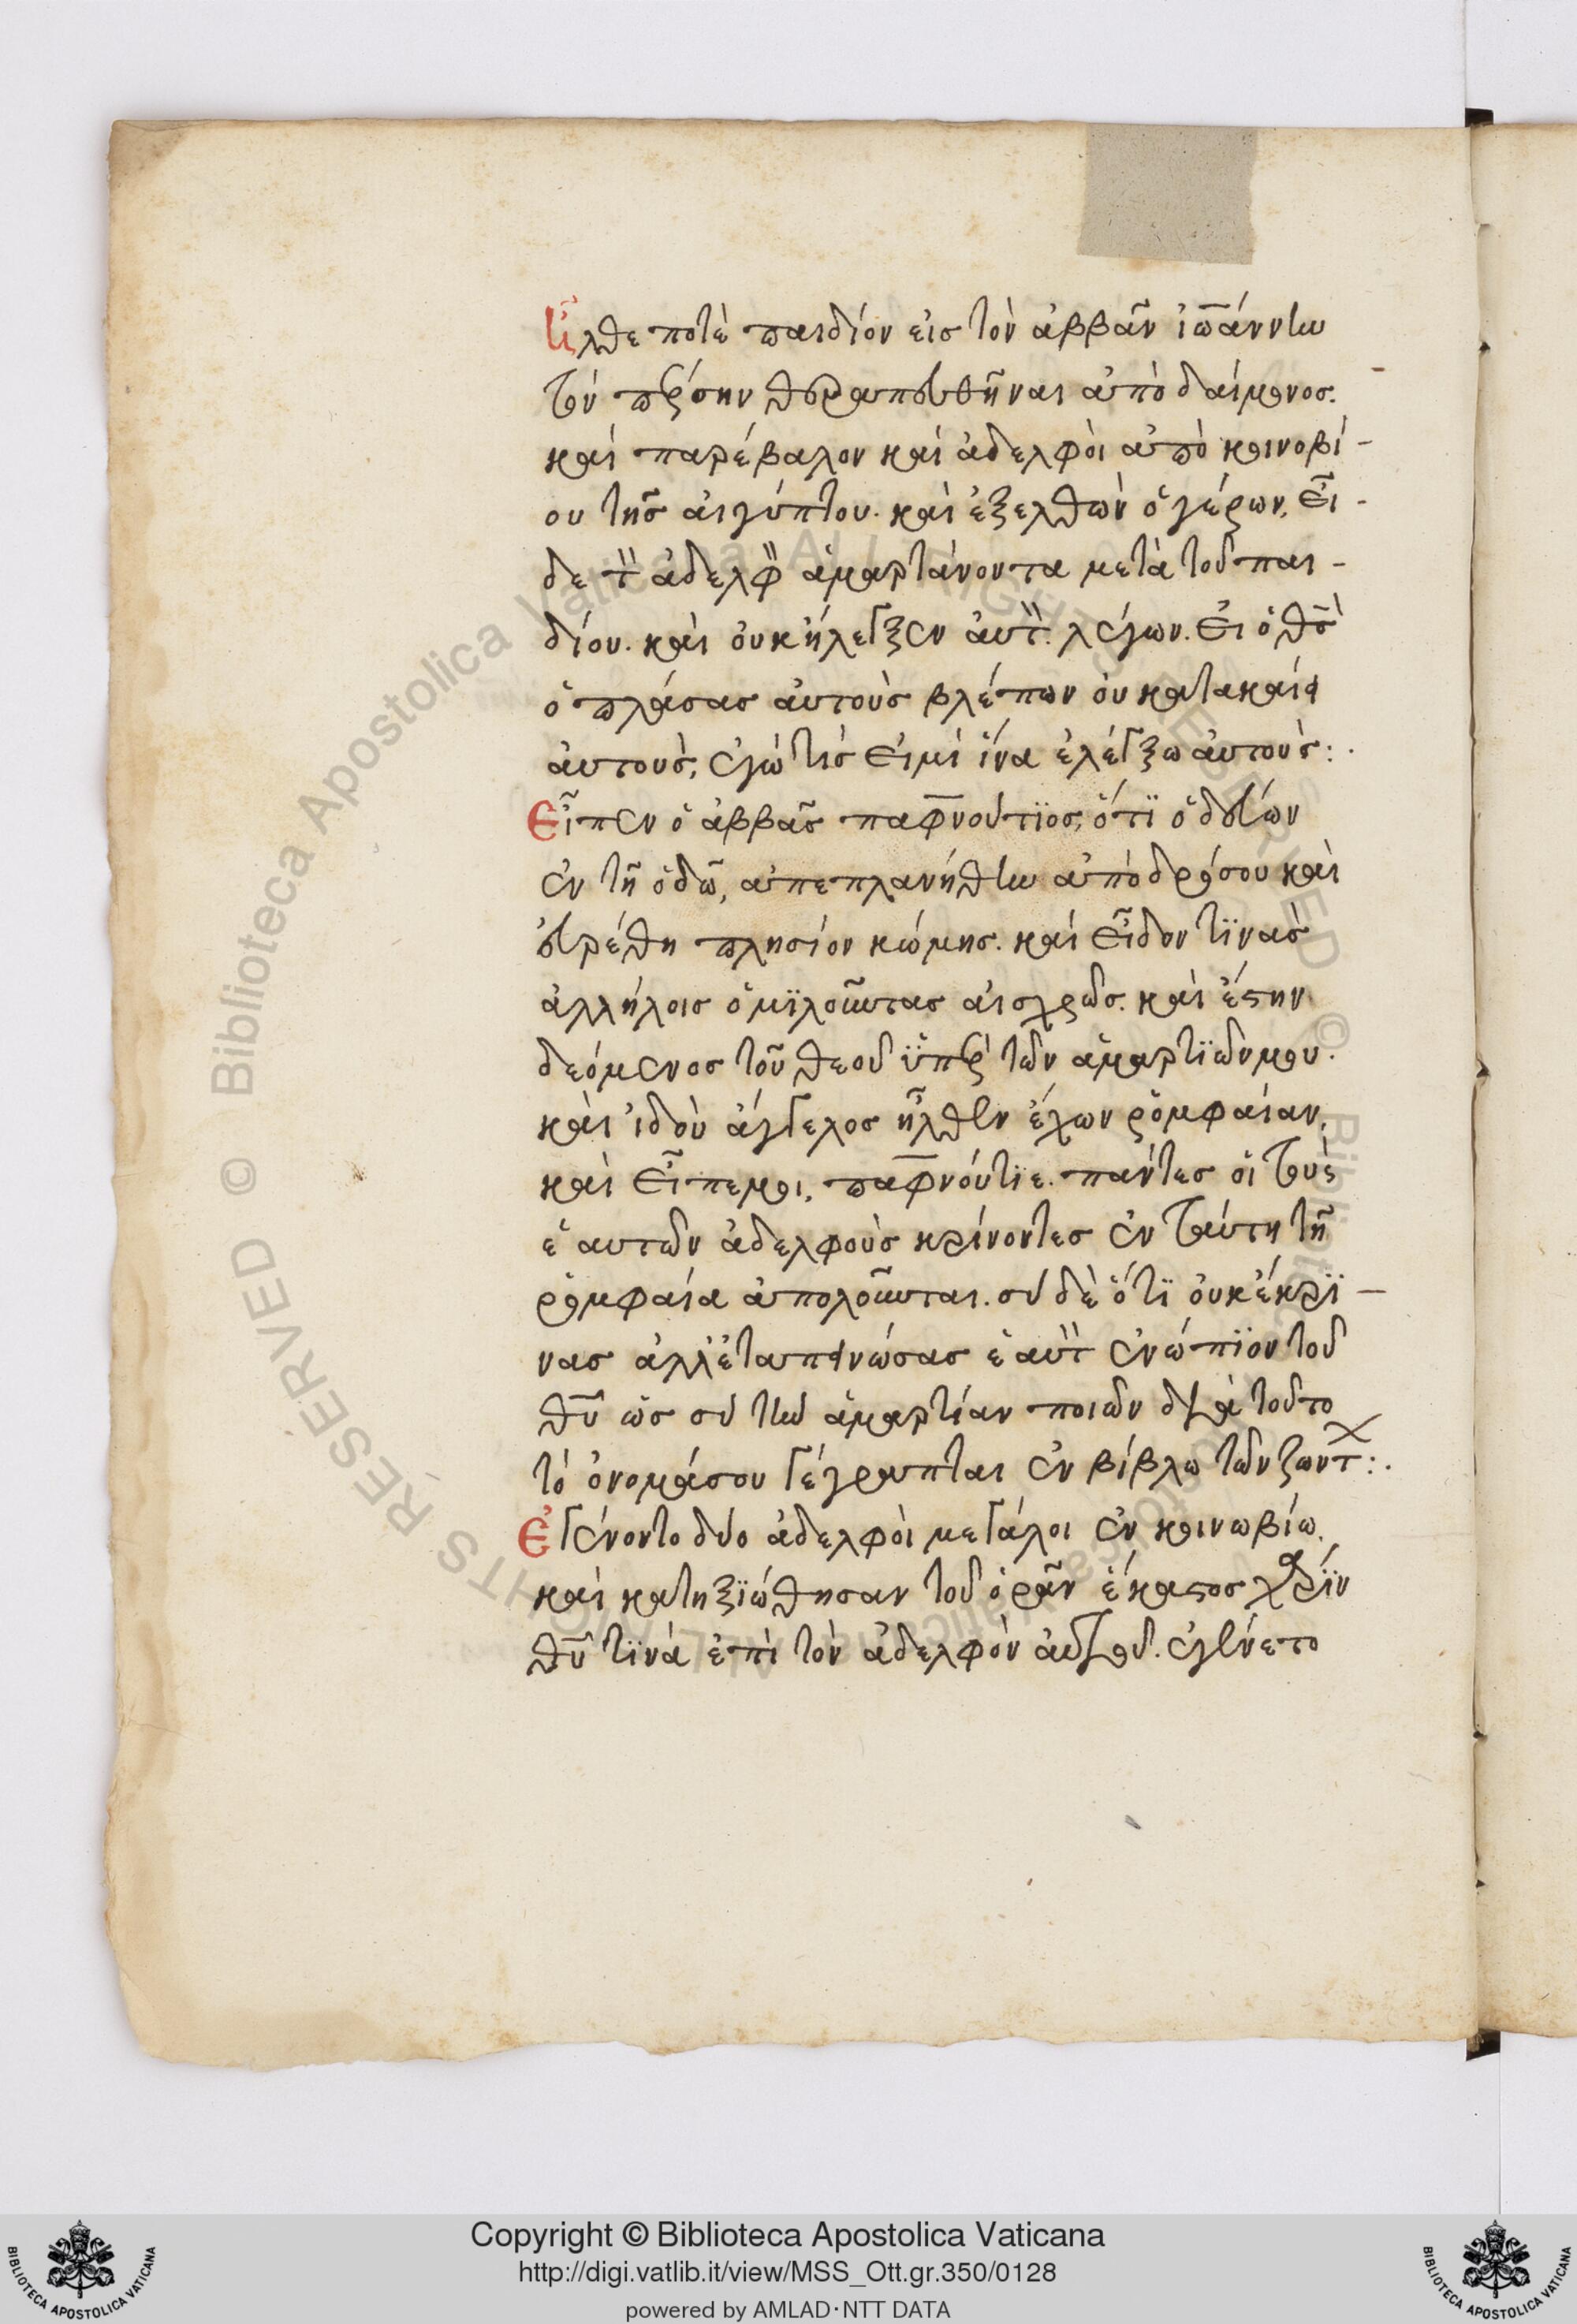 Ἦλθε ποτὲ παιδίον εἰς τὸν ἀββᾶν ἰω̅άννην
τὸν πέρσην θεραπευθῆναι ἀπὸ δαίμονος.
καὶ παρέβαλον καὶ ἀδελφοὶ ἀπὸ κοινοβί-
ου τῆς αἰγύπτου. καὶ ἐξελθὼν ὁ γέρων, εἶ-
δε τὸν ἀδελφὸν ἁμαρτάνοντα μετὰ τοῦ παι-
δίου. καὶ οὐκ ἤλεγξεν αὐτὸν. λέγων. εἰ ὁ θ̅ς̅
ὁ πλάσας αὐτοὺς βλέπων οὐ κατακαίει
αὐτοὺς, ἐγὼ τίς εἰμὶ ἵνα ἐλέγξω αὐτούς:.
Εἶπεν ὁ ἀββᾶς παφνούτϊος, ὅτϊ ὁδεύων
ἐν τῆ ὁδῶ, ἀπεπλανήθην ἀπὸ δρόσου καὶ
εὑρέθη πλησίον κώμης. καὶ εἶδον τϊνὰς
ἀλλήλοις ὁμϊλοῦντας αἰσχρῶς. καὶ ἔστην
δεόμενος τοῦ θεοῦ ὑπὲρ τῶν ἁμαρτϊῶν μου.
καὶ ἰδοὺ ἄγγελος ἦλθεν ἔχων ῥομφαίαν,
καὶ εἶπε μοι, παφνούτϊε. πάντες οἱ τοὺς
ἑαυτῶν ἀδελφοὺς κρίνοντες ἐν ταύτη τῆ
ῥομφαία ἀπολοῦνται. σὺ δὲ ὅτϊ οὐκ ἔκρϊ-
νας ἀλλ' ἐταπεινώσας ἑαυτὸν ἐνώπϊον τοῦ
θ̅υ̅ ὡς σὺ τὴν ἁμαρτίαν ποιῶν διὰ τοῦτο
τὸ ὄνομά σου γέγραπται ἐν βίβλω τῶν ζώντων:.
Ἐγένοντο δύο ἀδελφοὶ μεγάλοι ἐν κοινωβίω.
καὶ κατηξϊώθησαν τοῦ ὁρᾶν ἕκαστος χάρϊν
θ̅υ̅ τϊνὰ ἐπὶ τὸν ἀδελφὸν αὐτοῦ. ἐγένετο
Copyright © Biblioteca Apostolica Vaticana
http://digi.vatlib.it/view/MSS_Ott.gr.350/0128
powered by AMLAD·NTT DATA